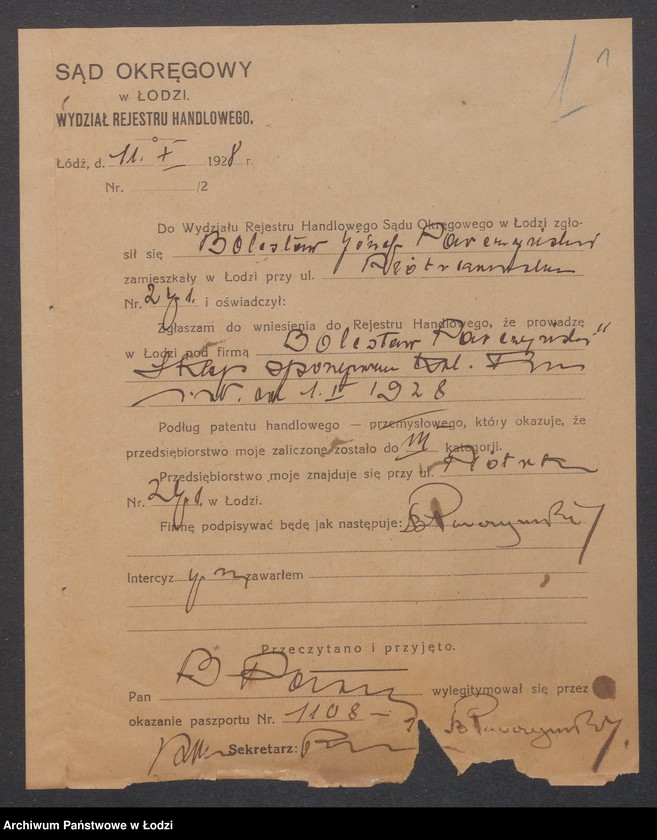 SĄD OKRĘGOWY
w ŁODZI.
WYDZIAŁ REJESTRU HANDLOWEGO.
Łódź, d. 11. X 1928 r.
Nr. /2
Do Wydziału Rejestru Handlowego Sądu Okręgowego w Łodzi zgło-
sił się Bolesław Józef Parczyński
zamieszkały w Łodzi przy ul. Piotrkowska
Nr. i oświadczył:
Zgłaszam do wniesienia do Rejestru Handlowego, że prowadzę
w Łodzi pod firmą Bolesław Parczyński"
Sklep
1928
Podług patentu handlowego — przemysłowego, który okazuje, że
przedsiębiorstwo moje zaliczone zostało do III kategorji.
Przedsiębiorstwo moje znajduje się przy ul. Piotrk
Nr. w Łodzi.
Firmę podpisywać będę jak następuje: B Parczyński
Intercyz zawarłem
Przeczytano i przyjęto.
Pan wylegitymował się przez
okazanie paszportu Nr. 1108 B Parczyński
Sekretarz:
Archiwum Państwowe w Łodzi